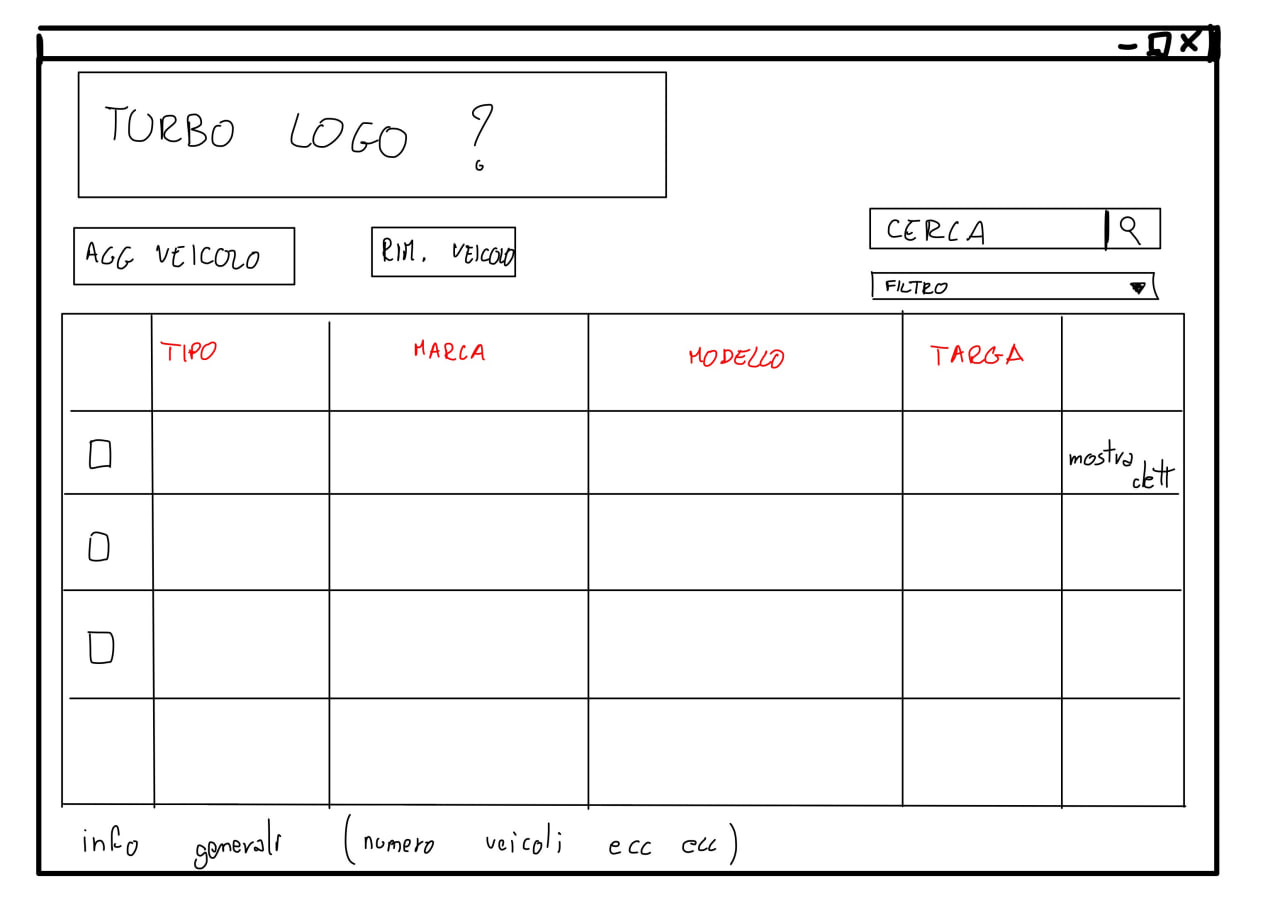 TURBO LOGO ?
CERCA
AGG VEICOLO
RIM. VEICOLO
FILTRO
TIPO MARCA MODELLO TARGA
mostra
dett
info generali (numero veicoli ecc ecc)